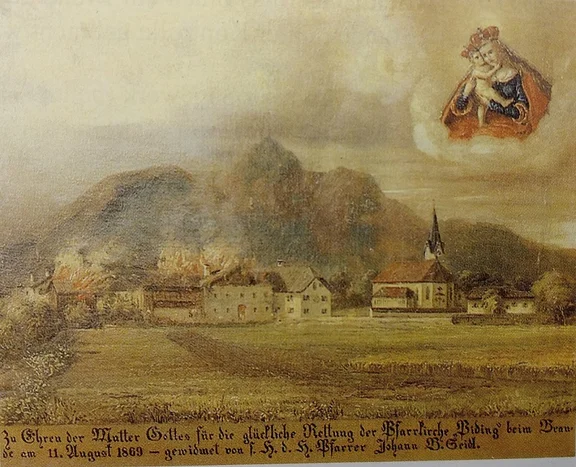 Zu Ehren der Mutter Gottes für die glückliche Rettung der Pfarrkirche Piding beim Bran-
de am 11. August 1869 – gewidmet von s. H. d. H. Pfarrer Johann B. Seidl.